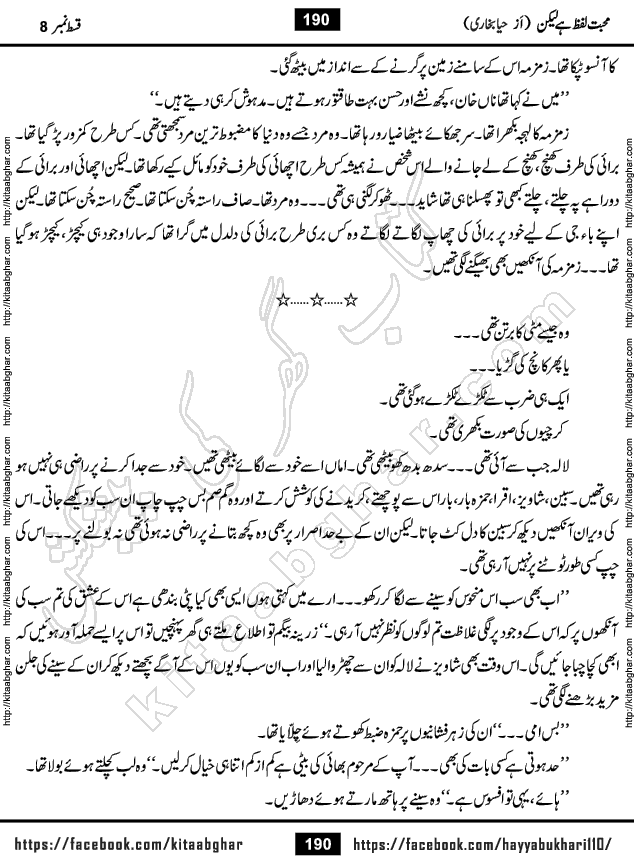 محبت لفظ ہے لیکن (اَز حیا بخاری)
190
قسط نمبر 8
کا آنسو ٹپکا تھا۔ زمزمہ اس کے سامنے زمین پر گرنے کے سے انداز میں بیٹھ گئی۔
’’میں نے کہا تھا ناں خان، کچھ نشے اور حسن بہت طاقتور ہوتے ہیں۔ مدہوش کر ہی دیتے ہیں۔‘‘
زمزمہ کا لہجہ بکھرا تھا۔ سر جھکائے بیٹھا ضیا رو رہا تھا۔ وہ مرد جسے وہ دنیا کا مضبوط ترین مرد سمجھتی تھی۔ کس طرح کمزور پڑ گیا تھا۔
برائی کی طرف کھینچ، کھینچ کے لے جانے والے اس شخص نے ہمیشہ کس طرح اچھائی کی طرف خود کو مائل کیے رکھا تھا۔ لیکن اچھائی اور برائی کے
دوراہے پہ چلتے، چلتے کبھی تو پھسلنا ہی تھا شاید۔۔۔ ٹھوکر لگنی ہی تھی۔۔۔ وہ مرد تھا۔ صاف راستہ چُن سکتا تھا۔ صحیح راستہ چُن سکتا تھا۔ لیکن
اپنے باء جی کے لیے خود پر برائی کی چھاپ لگاتے لگاتے وہ کس بری طرح برائی کی دلدل میں گرا تھا کہ سارا وجود ہی کیچڑ، کیچڑ ہو گیا
تھا۔۔۔ زمزمہ کی آنکھیں بھی بھیگنے لگی تھیں۔
☆......☆......☆
وہ جیسے مٹی کا برتن تھی۔۔۔
یا پھر کانچ کی گڑیا۔۔۔
ایک ہی ضرب سے ٹکڑے ٹکڑے ہو گئی تھی۔
کرچیوں کی صورت بکھری تھی۔
لالہ جب سے آئی تھی۔۔۔ سدھ بدھ کھو بیٹھی تھی۔ اماں اسے خود سے لگائے بیٹھی تھیں۔ خود سے جدا کرنے پر راضی ہی نہیں ہو
رہی تھیں۔ سبین، شاویز، اقرا، حمزہ بار، بار اس سے پوچھتے، کریدنے کی کوشش کرتے اور وہ گم صم بس چپ چاپ ان سب کو دیکھے جاتی۔ اس
کی ویران آنکھیں دیکھ کر سبین کا دل کٹ جاتا۔ لیکن ان کے بے حد اصرار پر بھی وہ کچھ بتانے پر راضی نہ ہوئی تھی نہ بولنے پر۔۔۔ اس کی
چپ کسی طور ٹوٹنے پر نہیں آ رہی تھی۔
’’اب بھی سب اس منحوس کو سینے سے لگا کر رکھو۔۔۔ ارے میں کہتی ہوں ایسی بھی کیا پٹی بندھی ہے اس کے عشق کی تم سب کی
آنکھوں پر کہ اس کے وجود پر لگی غلاظت تم لوگوں کو نظر نہیں آ رہی۔‘‘ زرینہ بیگم تو اطلاع ملتے ہی گھر پہنچیں تو اس پر ایسے حملہ آور ہوئیں کہ
ابھی کچا چبا جائیں گی۔ اس وقت بھی شاویز نے لالہ کو ان سے چھڑوا لیا اور اب ان سب کو یوں اس کے آگے بچھتے دیکھ کر ان کے سینے کی جلن
مزید بڑھنے لگی تھی۔
’’بس امی۔۔۔‘‘ ان کی زہر فشانیوں پر حمزہ ضبط کھوتے ہوئے چِلّایا تھا۔
’’حد ہوتی ہے کسی بات کی بھی۔۔۔ آپ کے مرحوم بھائی کی بیٹی ہے کم از کم اتنا ہی خیال کر لیں۔‘‘ وہ لب کچلتے ہوئے بولا تھا۔
’’ہائے، یہی تو افسوس ہے۔‘‘ وہ سینے پر ہاتھ مارتے ہوئے دھاڑیں۔
https://facebook.com/kitaabghar
190
https://facebook.com/hayyabukhari110/
http://kitaabghar.com http://kitaabghar.com http://kitaabghar.com http://kitaabghar.com http://kitaabghar.com http://kitaabghar.com
http://kitaabghar.com http://kitaabghar.com http://kitaabghar.com http://kitaabghar.com http://kitaabghar.com http://kitaabghar.com
کتاب گھر کی پیشکش
kitaabghar.com